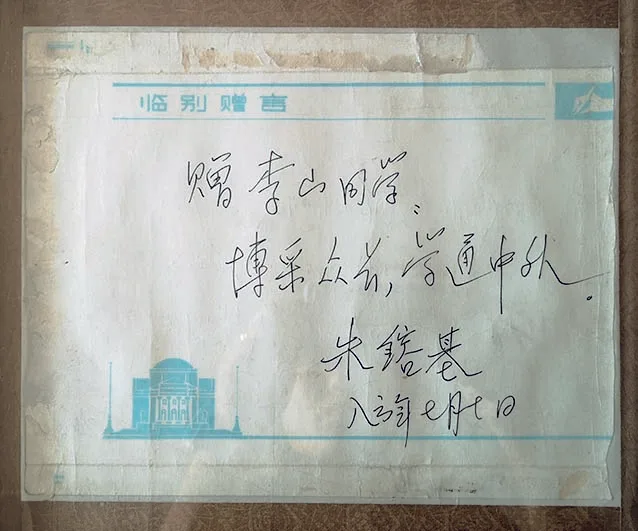 临别赠言
赠李山同学:
博采众长,学通中外。
朱镕基
八六年七月七日